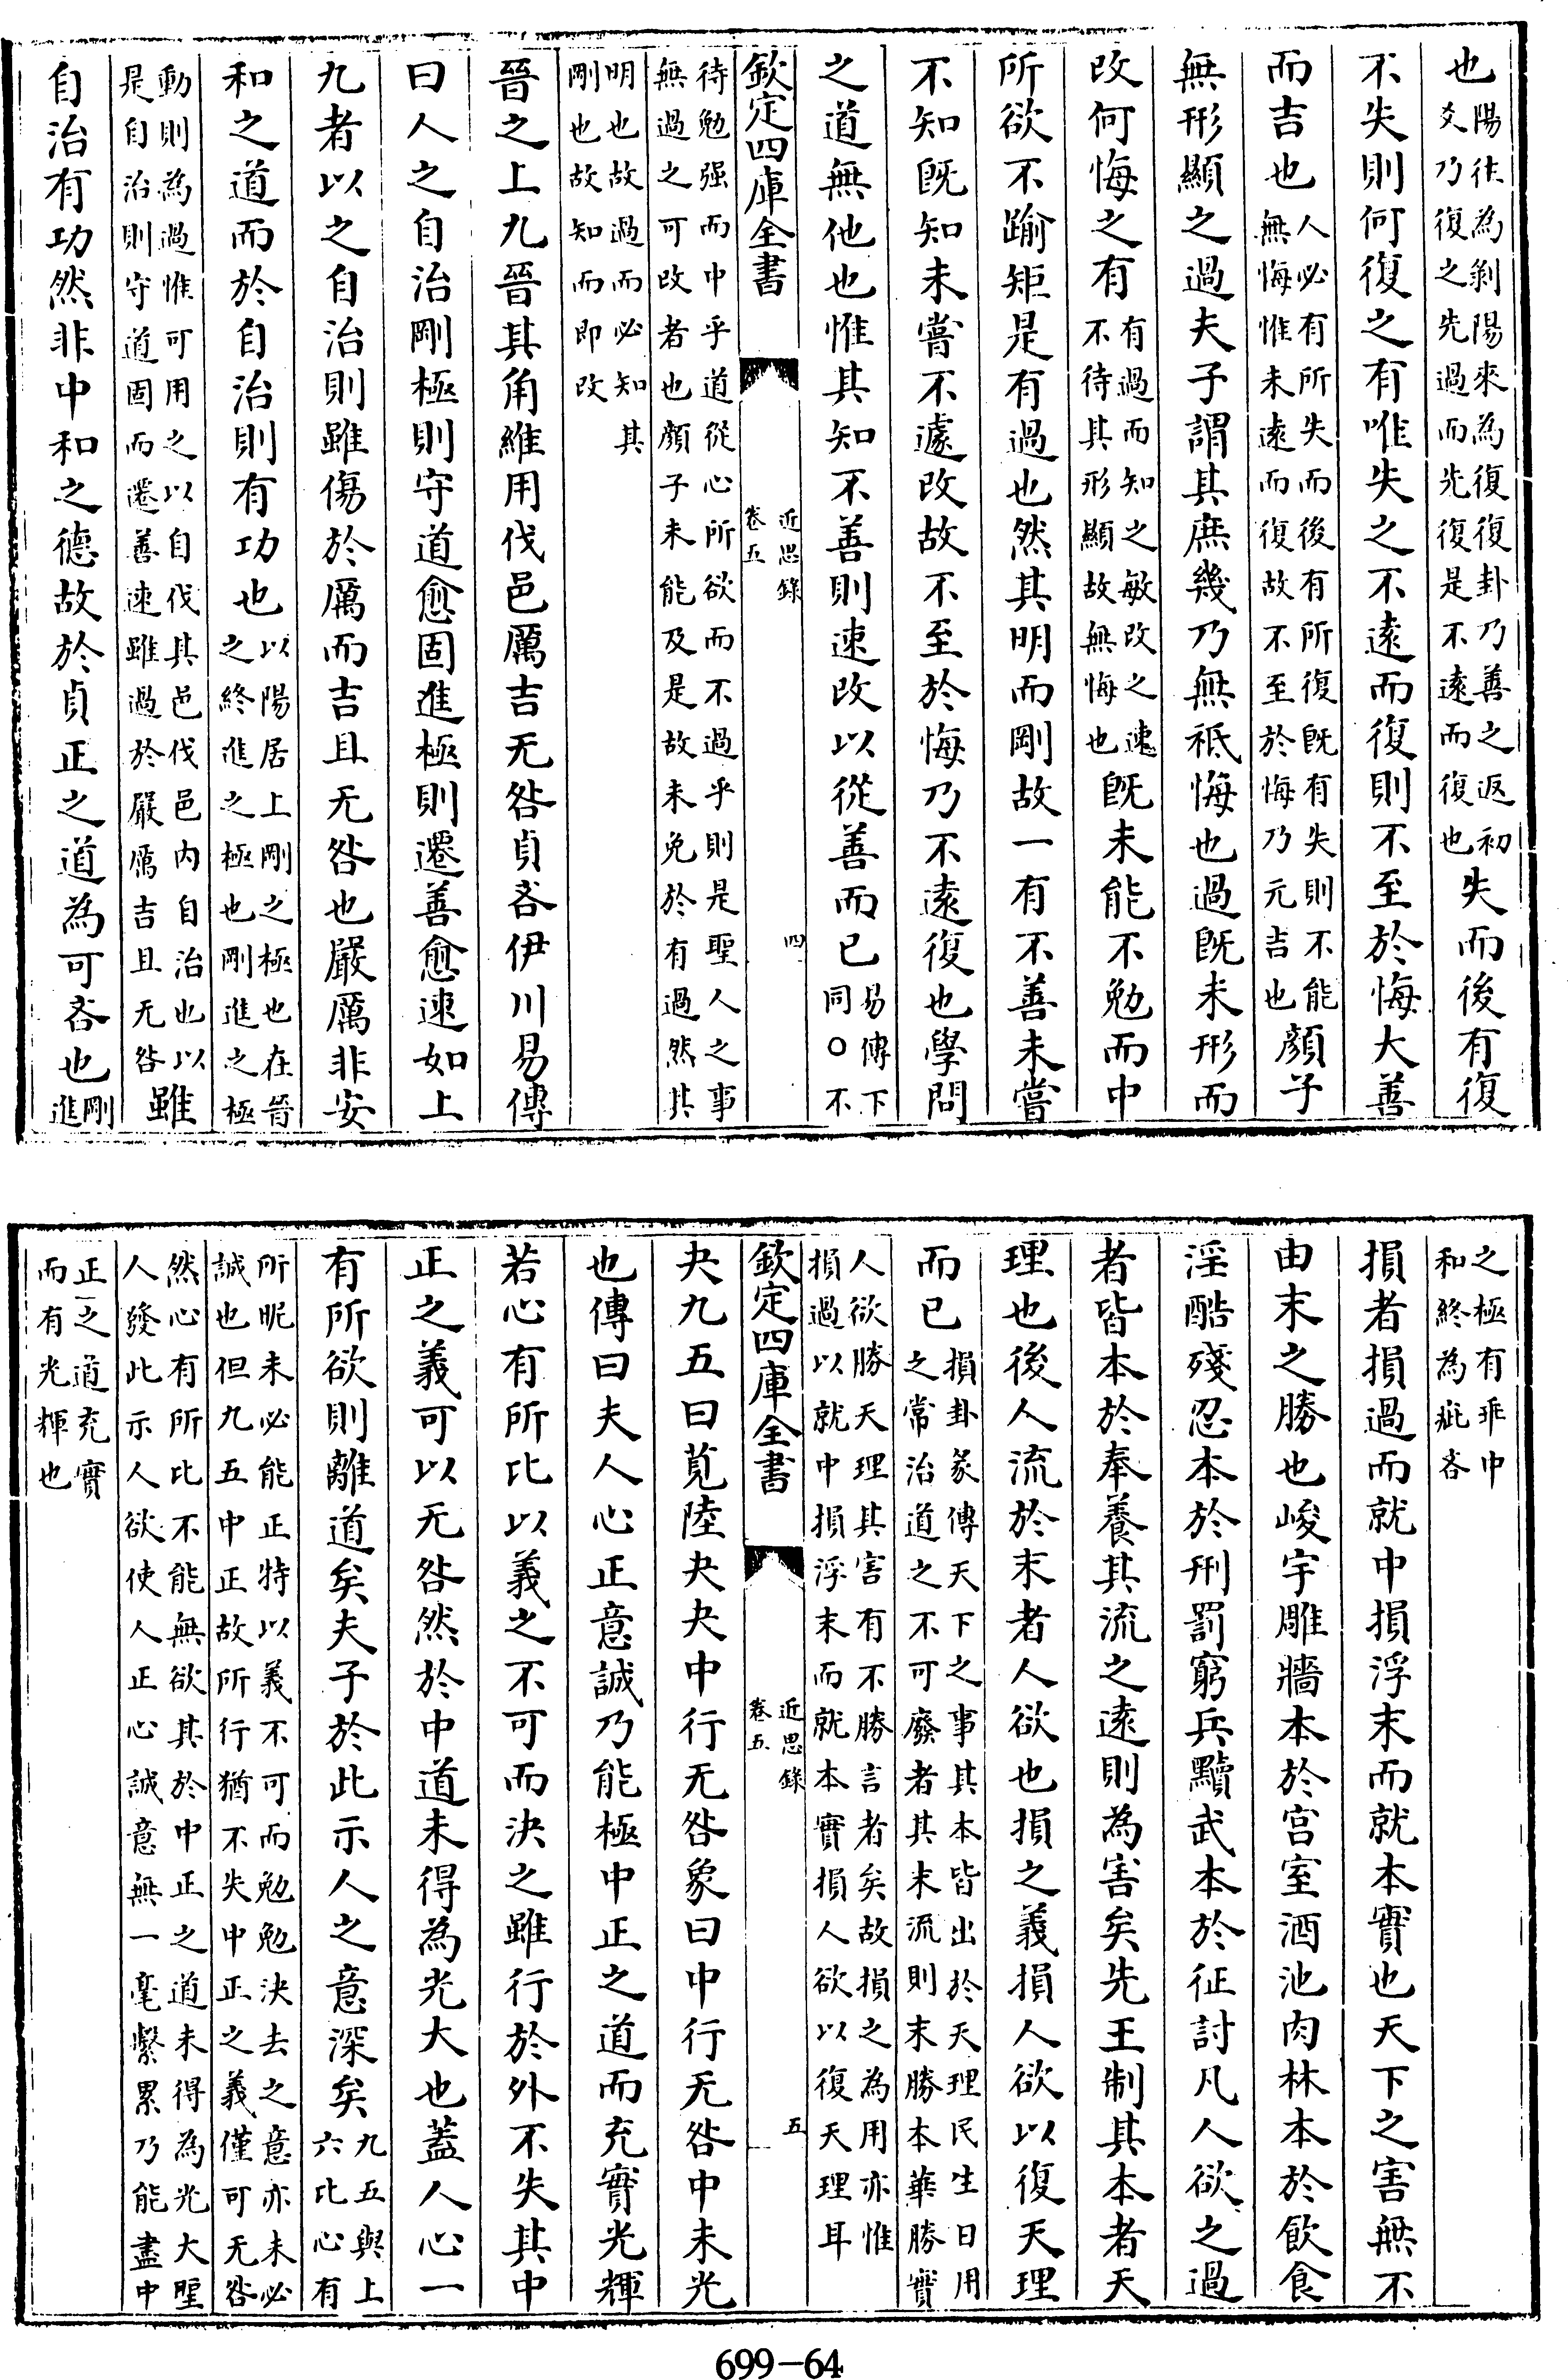 也陽往為剝陽來為復復卦乃善之返初爻乃復之先過而先復是不遠而復也失而後有復
不失則何復之有唯失之不遠而復則不至於悔大善
而吉也人必有所失而後有所復既有失則不能無悔惟未遠而復故不至於悔乃元吉也顏子
無形顯之過夫子謂其庶幾乃無祗悔也過既未形而
改何悔之有有過而知之敏改之速不待其形顯故無悔也既未能不勉而中
所欲不踰矩是有過也然其明而剛故一有不善未嘗
不知既知未嘗不遽改故不至於悔乃不遠復也學問
之道無他也惟其知不善則速改以從善而已易傳下同○不
欽定四庫全書
近思錄
卷五
四
待勉强而中乎道從心所欲而不過乎則是聖人之事
無過之可改者也顏子未能及是故未免於有過然其
明也故過而必知其
剛也故知而即改
晉之上九晉其角維用伐邑厲吉无咎貞吝伊川易傳
曰人之自治剛極則守道愈固進極則遷善愈速如上
九者以之自治則雖傷於厲而吉且无咎也嚴厲非安
和之道而於自治則有功也以陽居上剛之極也在晉之終進之極也剛進之極
動則為過惟可用之以自伐其邑伐邑內自治也以是自治則守道固而遷善速雖過於嚴厲吉且无咎雖
自治有功然非中和之德故於貞正之道為可吝也剛進
之極有乖中
和終為疵吝
損者損過而就中損浮末而就本實也天下之害無不
由末之勝也峻宇雕牆本於宫室酒池肉林本於飲食
淫酷殘忍本於刑罰窮兵黷武本於征討凡人欲之過
者皆本於奉養其流之遠則為害矣先王制其本者天
理也後人流於末者人欲也損之義損人欲以復天理
而已損卦彖傳天下之事其本皆出於天理民生日用之常治道之不可廢者其末流則末勝本華勝實
人欲勝天理其害有不勝言者矣故損之為用亦惟
損過以就中損浮末而就本實損人欲以復天理耳
欽定四庫全書
近思錄
卷五
五
夬九五曰莧陸夬夬中行无咎象曰中行无咎中未光
也傳曰夫人心正意誠乃能極中正之道而充實光輝
若心有所比以義之不可而決之雖行於外不失其中
正之義可以无咎然於中道未得為光大也蓋人心一
有所欲則離道矣夫子於此示人之意深矣九五與上六比心有
所昵未必能正特以義不可而勉勉決去之意亦未必
誠也但九五中正故所行猶不失中正之義僅可无咎
然心有所比不能無欲其於中正之道未得為光大聖
人發此示人欲使人正心誠意無一毫繫累乃能盡中
正之道充實
而有光輝也
699-64